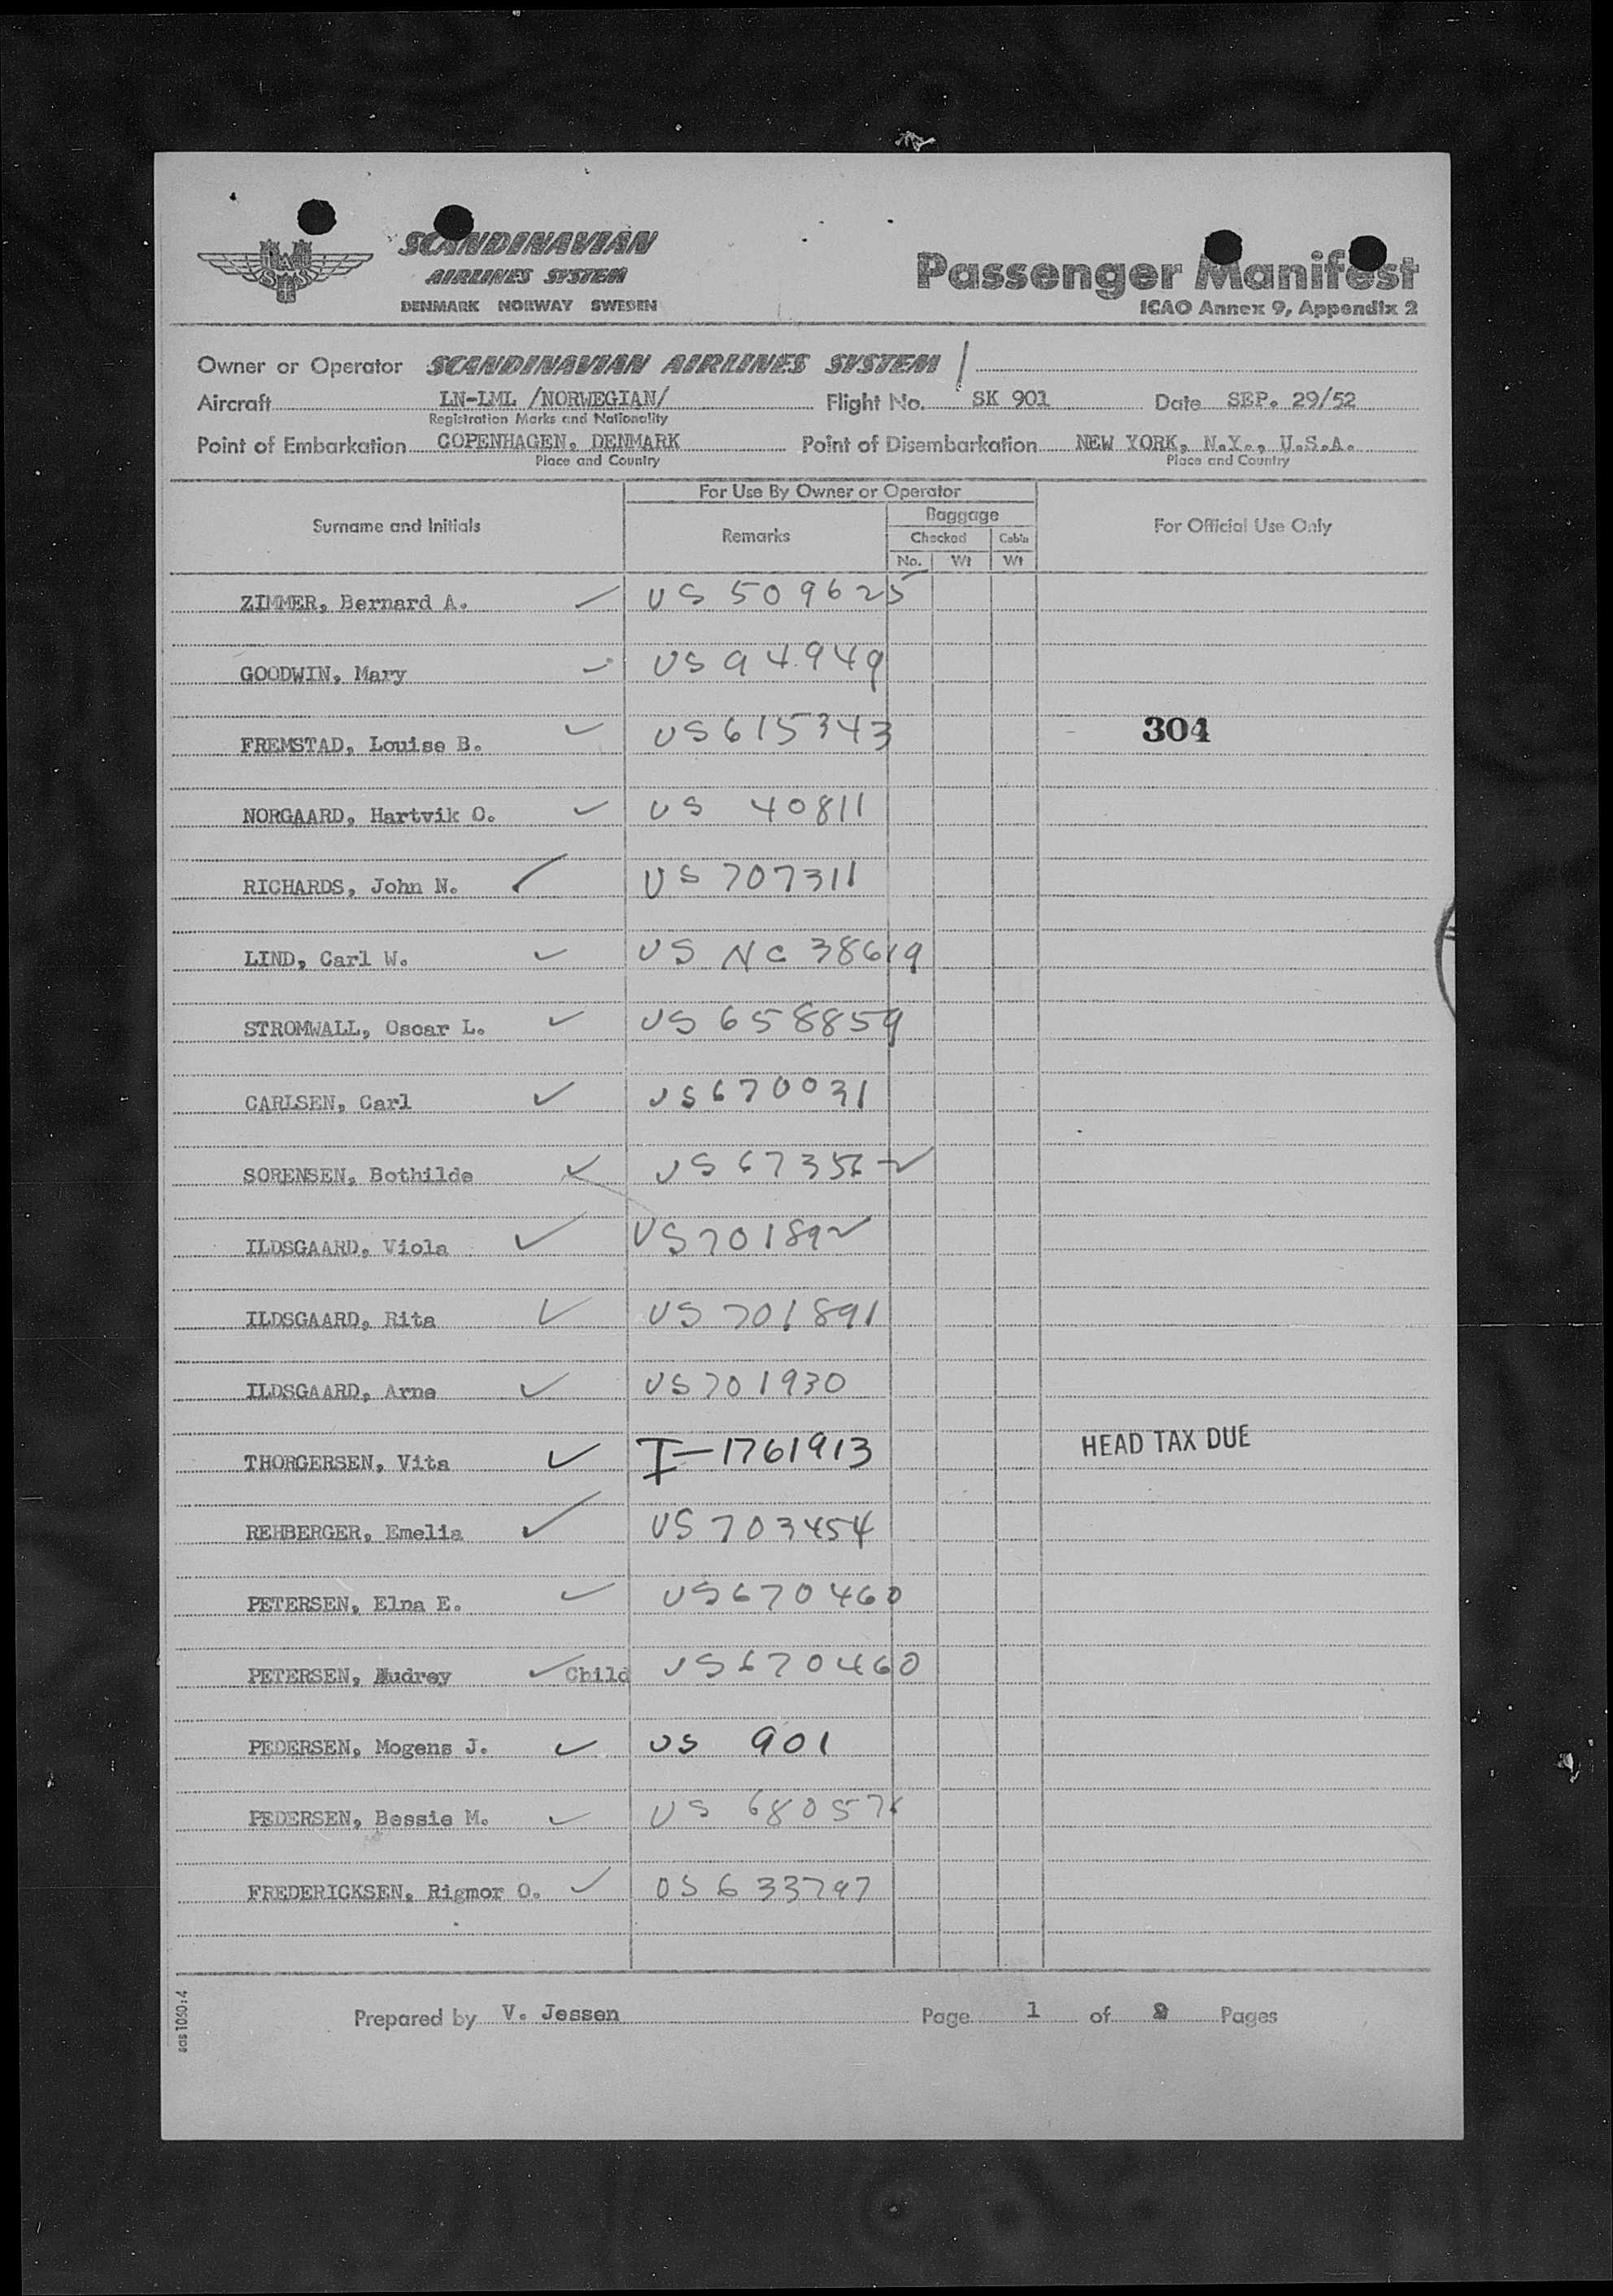 SCANDINAVIAN
AIRLINES SYSTEM
DENMARK NORWAY SWEDEN
SAS
Passenger Manifest
ICAO Annex 9, Appendix 2
Owner or Operator SCANDINAVIAN AIRLINES SYSTEM /
Aircraft LN-LML /NORWEGIAN/ Flight No. SK 901 Date SEP. 29/52
Registration Marks and Nationality
Point of Embarkation COPENHAGEN, DENMARK Point of Disembarkation NEW YORK, N.Y., U.S.A.
Place and Country Place and Country
For Use By Owner or Operator
Surname and Initials Remarks Baggage For Official Use Only
Checked Cabin
No. Wt Wt
ZIMMER, Bernard A. US 509625
GOODWIN, Mary US 94949
FREMSTAD, Louise B. US 615343 304
NORGAARD, Hartvik O. US 40811
RICHARDS, John N. US 707311
LIND, Carl W. US NC 38619
STROMWALL, Oscar L. US 658859
CARLSEN, Carl US 670031
SORENSEN, Bothilde US 673562
ILDSGAARD, Viola US 701892
ILDSGAARD, Rita US 701891
ILDSGAARD, Arne US 701930
THORGERSEN, Vita I-1761913 HEAD TAX DUE
REHBERGER, Emelia US 703454
PETERSEN, Elna E. US 670460
PETERSEN, Audrey Child US 670460
PEDERSEN, Mogens J. US 901
PEDERSEN, Bessie M. US 680576
FREDERICKSEN, Rigmor O. US 633797
sas 1060:4
Prepared by V. Jessen Page 1 of Pages